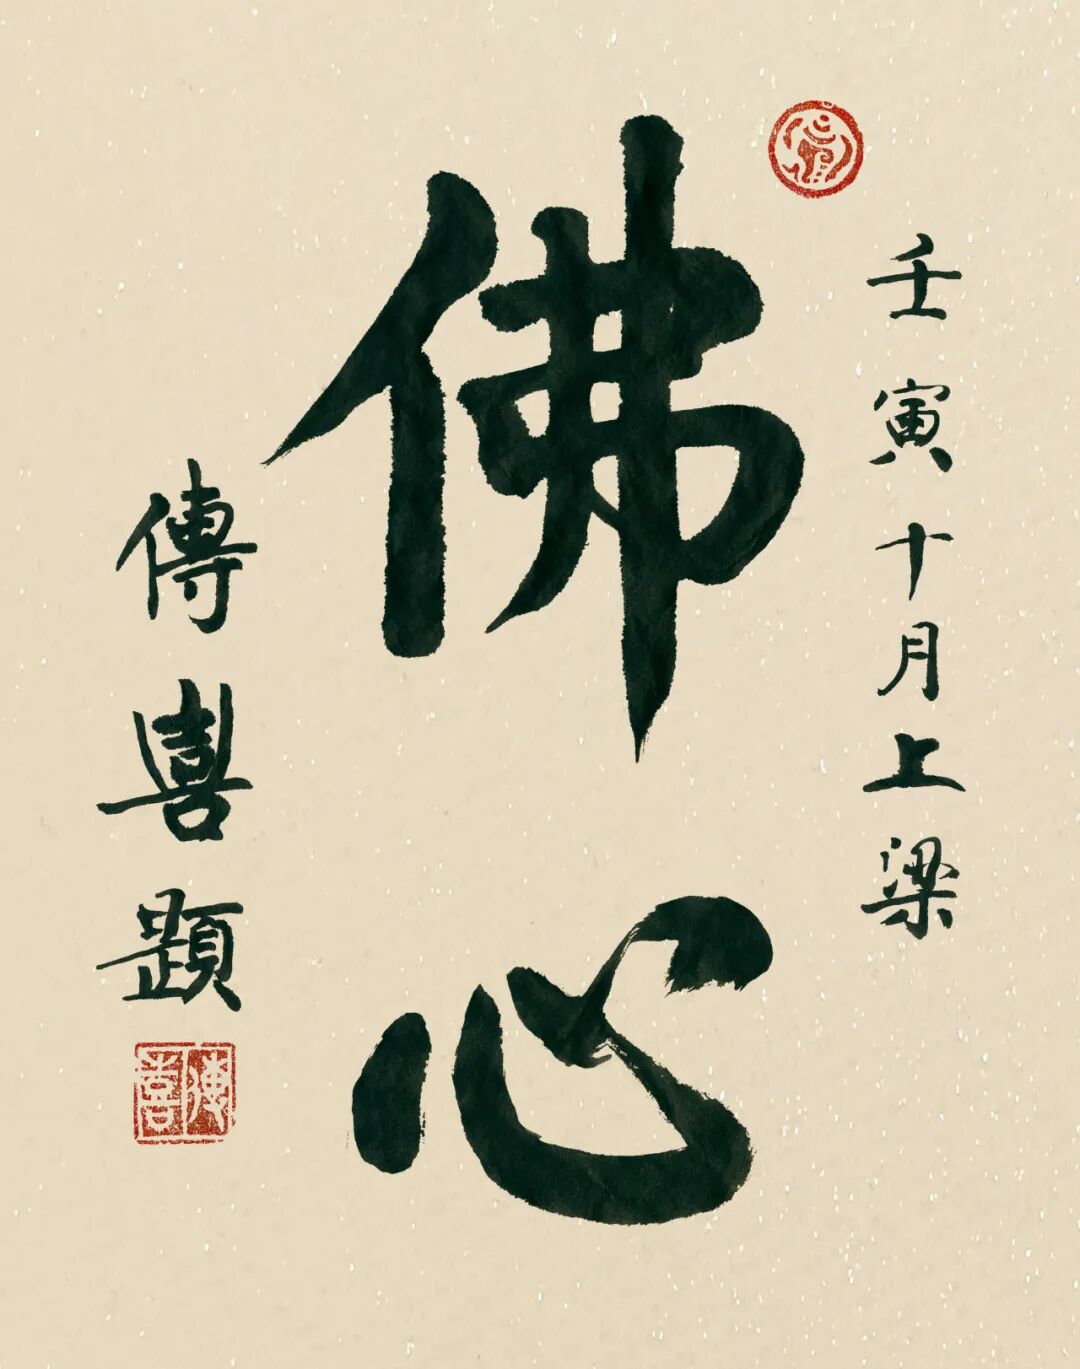 壬寅十月上梁
佛心
傳喜題
傳喜